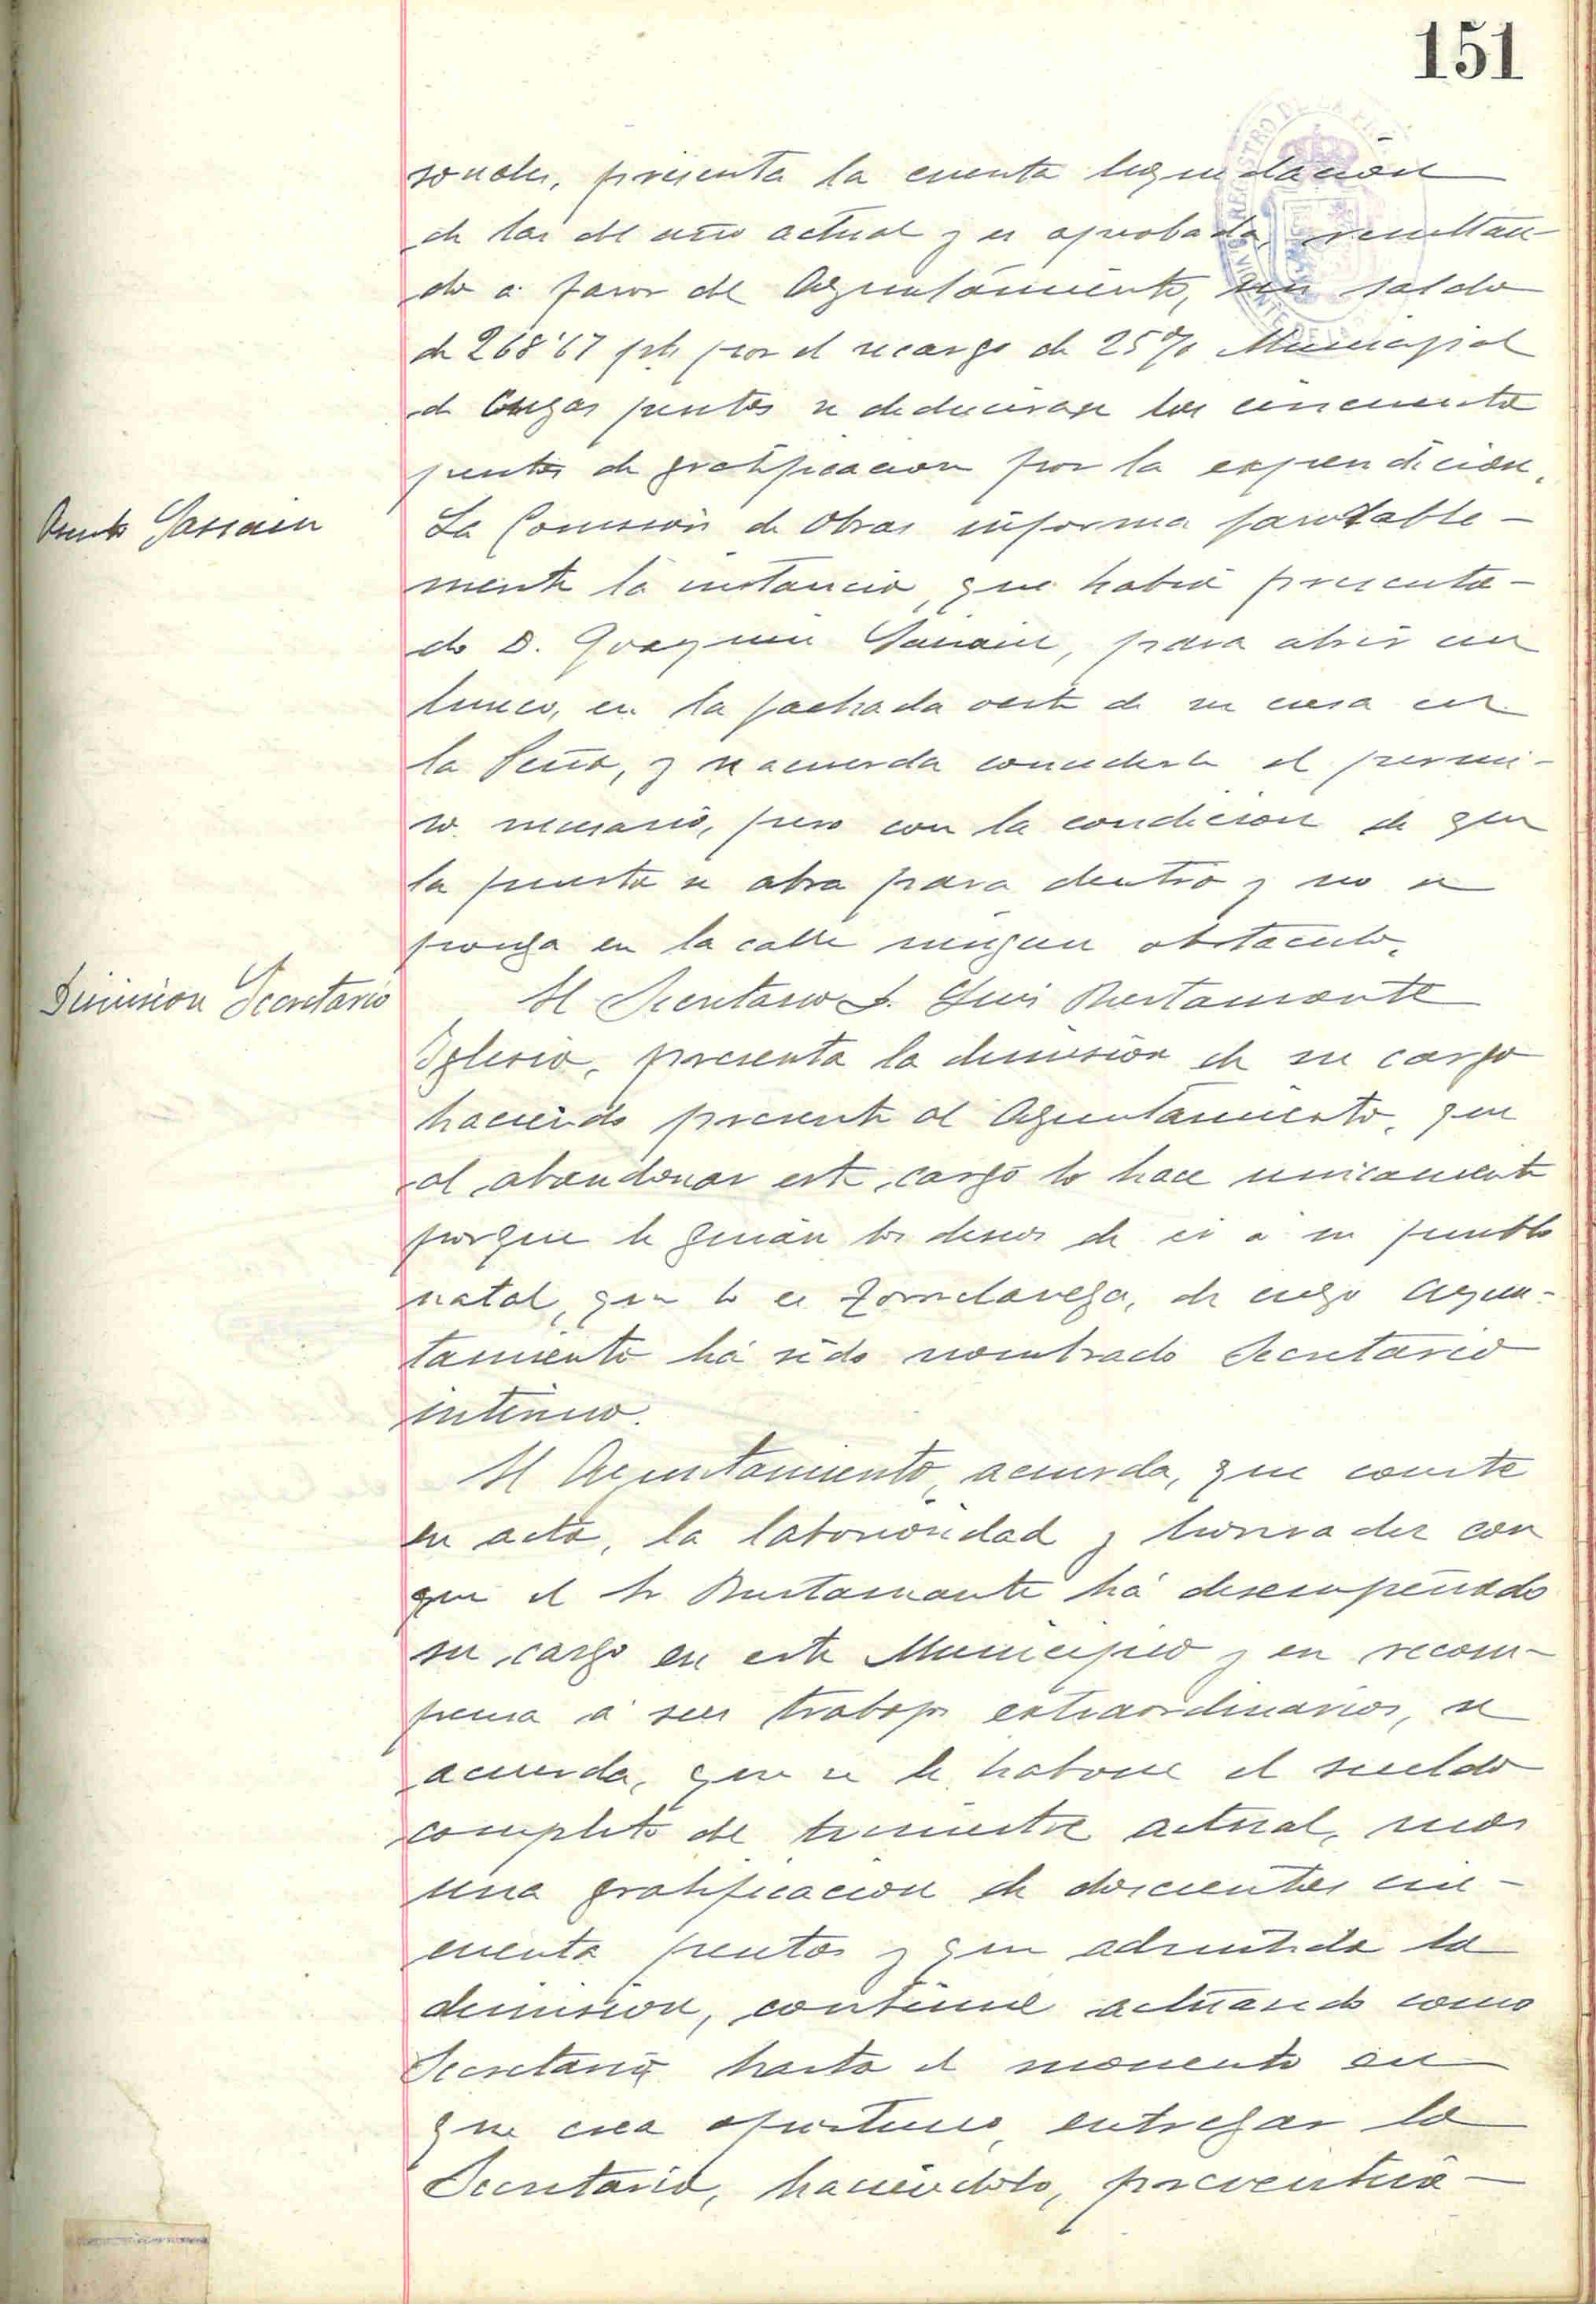 151
sonales, presenta la cuenta liquidación
de las del año actual y es aprobada, resultan-
do a favor del Ayuntamiento, un saldo
de 268'67 pts por el recargo de 25% Municipal
de cuyas pesetas se deducirán las cincuenta
pesetas de gratificacion por la expendición.
Asunto Sarrain
La Comisión de Obras informa favorable-
mente la instancia, que había presenta-
do D. Joaquin Sarrain, para abrir un
hueco, en la fachada oeste de su casa en
la Peña, y se acuerda concederle el permi-
so necesario, pero con la condicion de que
la puerta se abra para dentro y no se
ponga en la calle ningun obstaculo.
Dimision Secretario
El Secretario D. Luis Bustamante
Iglesia, presenta la dimisión de su cargo
haciendo presente al Ayuntamiento, que
al abandonar este cargo lo hace unicamente
porque le guían los deseos de ir a su pueblo
natal, que lo es Torrelavega, de cuyo Ayun-
tamiento há sido nombrado Secretario
interino.
El Ayuntamiento, acuerda, que conste
en acta, la laboriosidad y honradez con
que el Sr Bustamante há desempeñado
su cargo en este Municipio y en recom-
pensa á sus trabajos extraordinarios, se
acuerda, que se le habone el sueldo
completo del trimestre actual, mas
una gratificacion de doscientas cin-
cuenta pesetas y que admitida la
dimision, continue actuando como
Secretario hasta el momento en
que crea oportuno, entregar la
Secretaria, haciendolo,